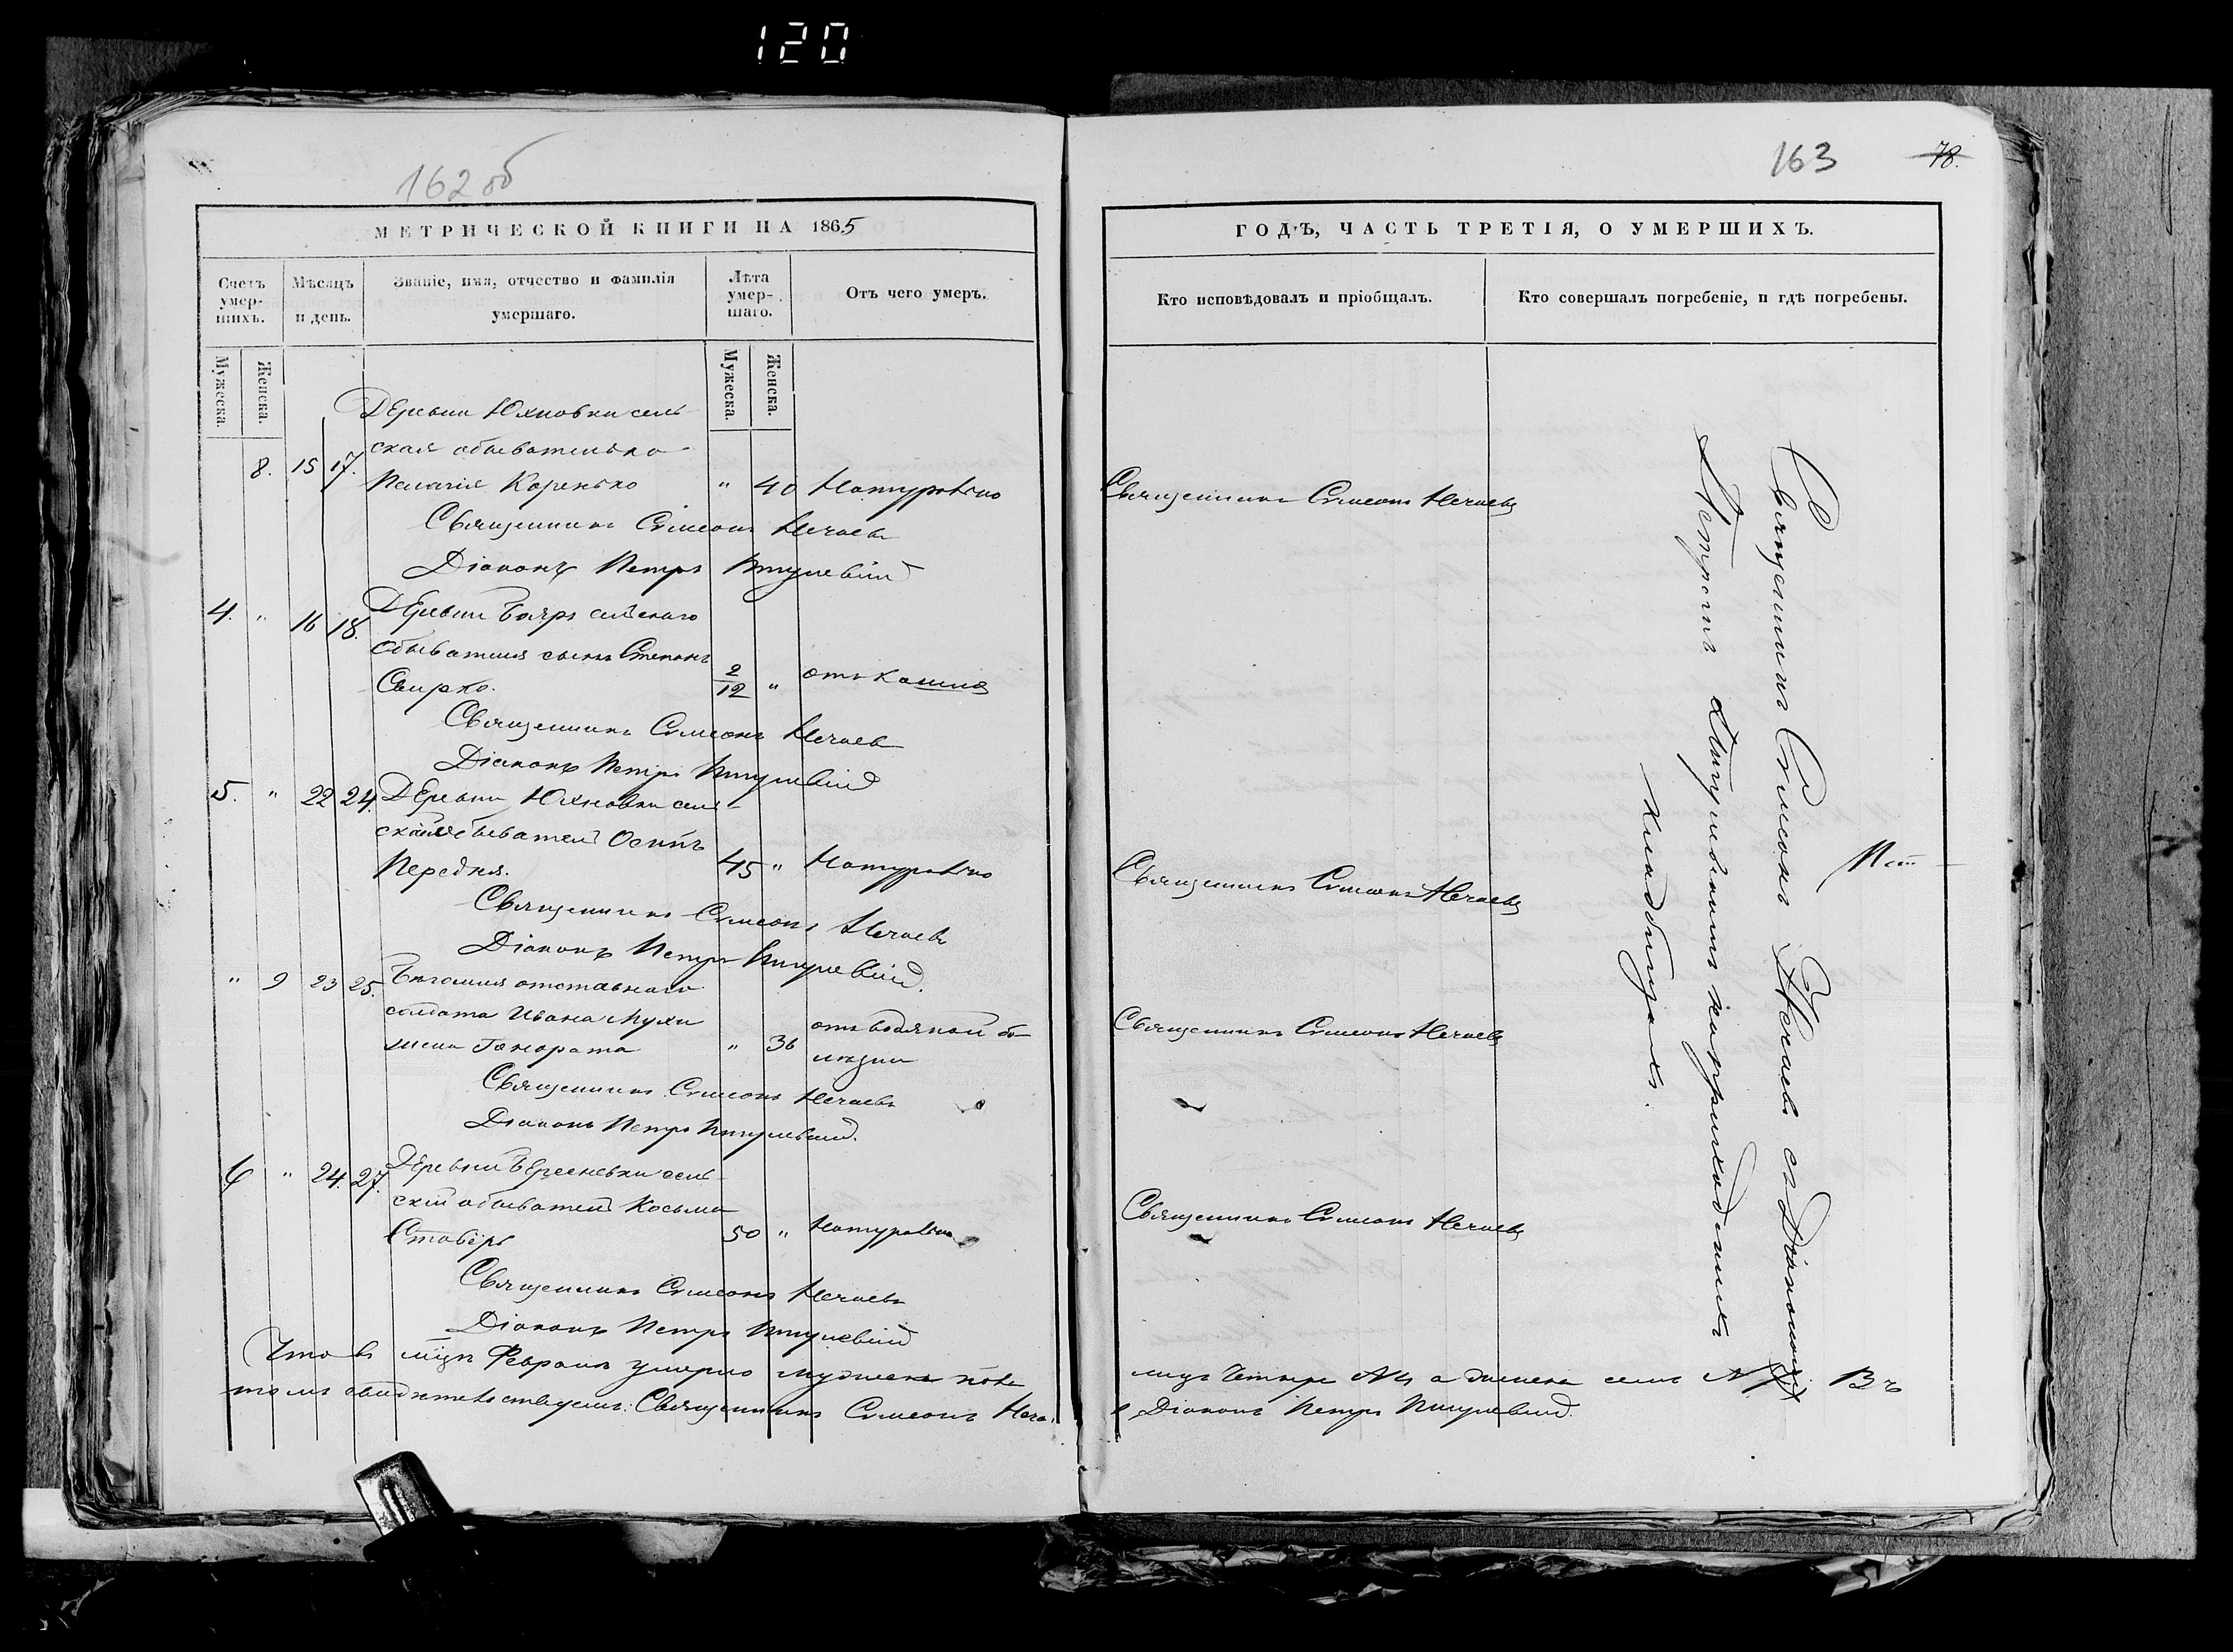 120
162 об
МЕТРИЧЕСКОЙ КНИГИ НА 1865
Счетъ умер-шихъ.
Мѣсяцъ и день.
Званіе, имя, отчество и фамилія умершаго.
Лѣта умер-шаго.
Отъ чего умеръ.
Мужеска.
Женска.
Мужеска.
Женска.
Деревни Юхновки сель
ская обывателька
8. 15 17. Пелагія Коренько " 40 Натурально
Священникъ Симеонъ Нечаевъ
Діаконъ Петръ
4. " 16 18. Деревни Бояръ сельскаго
обывателя сынъ Степанъ
Свирко. 2/12 " отъ кашля
Священникъ Симеонъ Нечаевъ
Діаконъ Петръ
5. " 22 24. Деревни Юхновки сель
обыватель Осипъ
Передня. 45 " Натурально
Священникъ Симеонъ Нечаевъ
Діаконъ Петръ
" 9 23 25. отставнаго
солдата Ивана Мухи
жена " 36 отъ водяной бо-
лѣзни
Священникъ Симеонъ Нечаевъ
Діаконъ Петръ
6 " 24. 27. Деревни сель
скій обыватель Косьма
50 " Натурально
Священникъ Симеонъ Нечаевъ
Діаконъ Петръ
Что въ мцѣ Февралѣ умерло мужеска пола
томъ свидѣтельствуемъ: Священникъ Симеонъ Неча
163
78.
ГОДЪ, ЧАСТЬ ТРЕТІЯ, О УМЕРШИХЪ.
Кто исповѣдовалъ и пріобщалъ.
Кто совершалъ погребеніе, и гдѣ погребены.
Священникъ Симеонъ Нечаевъ
Священникъ Симеонъ Нечаевъ
Священникъ Симеонъ Нечаевъ
Священникъ Симеонъ Нечаевъ
Священникъ Симеонъ Нечаевъ съ Діакономъ
Петромъ на приходскихъ
кладбищахъ.
лицъ четыре а женска семь Въ
Діаконъ Петръ